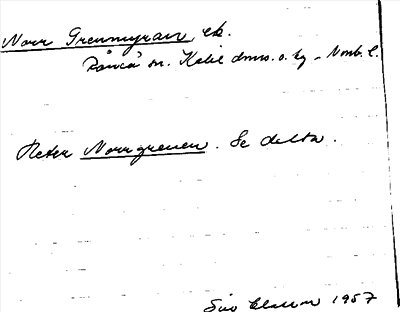 Norr Grenmyran, ek.
Råneå sn. Kalix dms. o. hg - Norrb. l.
Heter Norrgrenen. Se detta.
1957